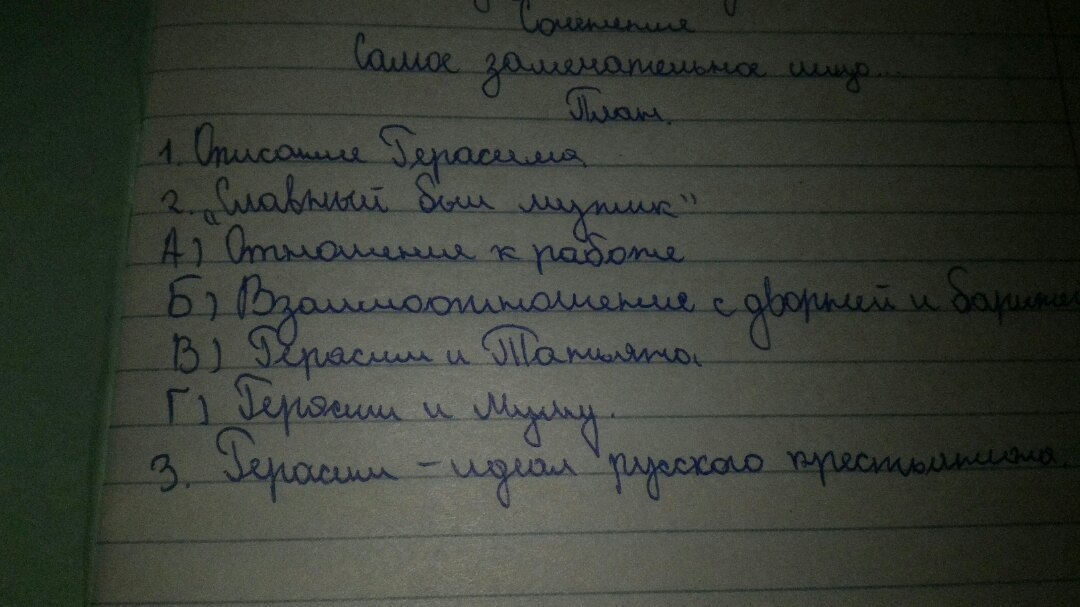 Сочинение
Самое замечательное лицо...
План.
1. Описание Герасима
2. „Славный был мужик"
А) Отношение к работе
Б) Взаимоотношение с дворней и барыней
В) Герасим и Татьяна
Г) Герасим и Муму.
3. Герасим – идеал русского крестьянина